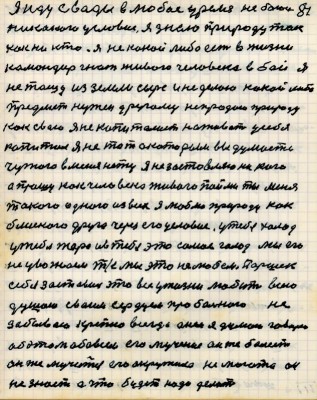 я иду с вады в любое время не боюсь 81
никакого условия, я знаю природу так
как ни кто. я не какой либо есть в жизни
командир гнат живого человека в бой я
не тащу из земли сырё и не делаю какой либо
предмет нужен другому не продаю природу
как сваю я не капиталист наживать себя
капитал я не тот а который вы думаете
чужого в меня нету я не заставляю никого
а прашу как человека живого пайми ты меня
такого одного из всех я люблю природу как
близкого друга через его условие, у тебя холод
у тебя жара и в тебя это самое голод мы его
не уважаем т/е мы это не любем. Паршек
себя заставил это все у жизни любить всею
душою своим сердцем про балного не
забывать крепко всегда а нем думать гаворю
аб этом абавсем его мучения он же болеет
он же мучится его окружила не мочота он
не знает а что будет надо делать